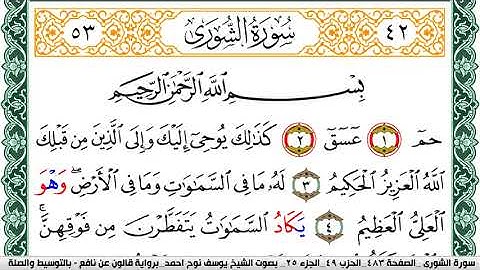 ٤٢ سُورَةُ الشُّورَى ٥٣
بِسْمِ اللَّهِ الرَّحْمَٰنِ الرَّحِيمِ
حمٓ ١ عٓسٓقٓ ٢ كَذَٰلِكَ يُوحِىٓ إِلَيْكَ وَإِلَى الَّذِينَ مِن قَبْلِكَ
اللَّهُ الْعَزِيزُ الْحَكِيمُ ٣ لَهُۥ مَا فِى السَّمَٰوَٰتِ وَمَا فِى الْأَرْضِۖ وَهْوَ
الْعَلِىُّ الْعَظِيمُ ٤ يَكَادُ السَّمَٰوَٰتُ يَتَفَطَّرْنَ مِن فَوْقِهِنَّۚ
سورة الشورى _ الصفحة ٤٨٣_ الحزب ٤٩ _الجزء ٢٥ _ بصوت الشيخ يوسف نوح احمد_ برواية قالون عن نافع - بالتوسيط والصلة